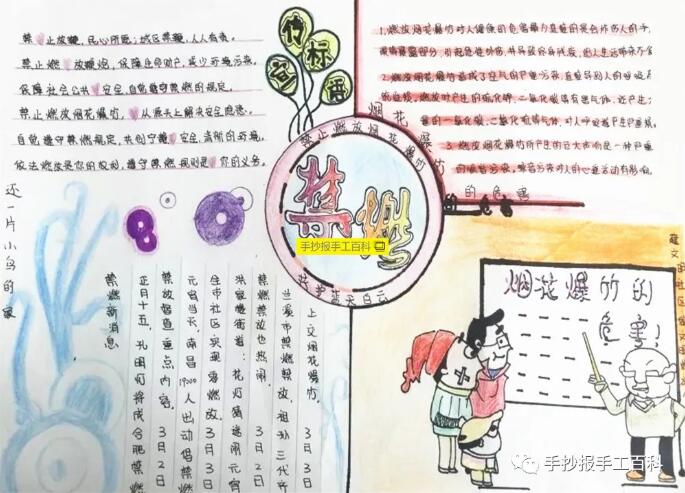 宣竹标语
禁止放鞭，民心所愿；城区禁鞭，人人有责。
禁止燃放鞭炮，保障生命财产，减少环境污染。
保障社会公共安全，自觉遵守禁燃的规定。
禁止燃放烟花爆竹，从源头上解决安全隐患。
自觉遵守禁燃规定，共创宁静安全、清新的环境。
依法燃放是你的权利，遵守禁燃规则是你的义务。
还一片小鸟的家
禁止燃放烟花爆竹
禁燃
爱护蓝天白云
手抄报手工百科
烟花爆竹的危害
1.燃放烟花爆竹对人健康的危害最为直接的是会炸伤人的手、
2.燃放烟花爆竹造成了空气的严重污染，直接导致人的呼吸系
的症状。燃放时产生的硫化钾、二氧化碳等有害气体，还产生
量的一氧化碳、二氧化硫等气体，对人呼吸道产生严重刺
3.燃放烟花爆竹所产生的巨大声响是一种严重
的噪音污染。噪音污染对人的心血管活动有影响
上交烟花爆竹。 3月3日
兰溪市禁燃禁放 祖孙三代齐
禁燃禁放也热闹 3月2日
洪家楼街道：花灯猜谜闹元宵
住市社区实现零燃放。 3月3日
元宵当天，南昌19000人出动倡禁燃
禁放督查重点内容。 3月2日
正月十五，孔明灯将成合肥禁燃
禁燃新消息
烟花爆竹的
危害！
手抄报手工百科